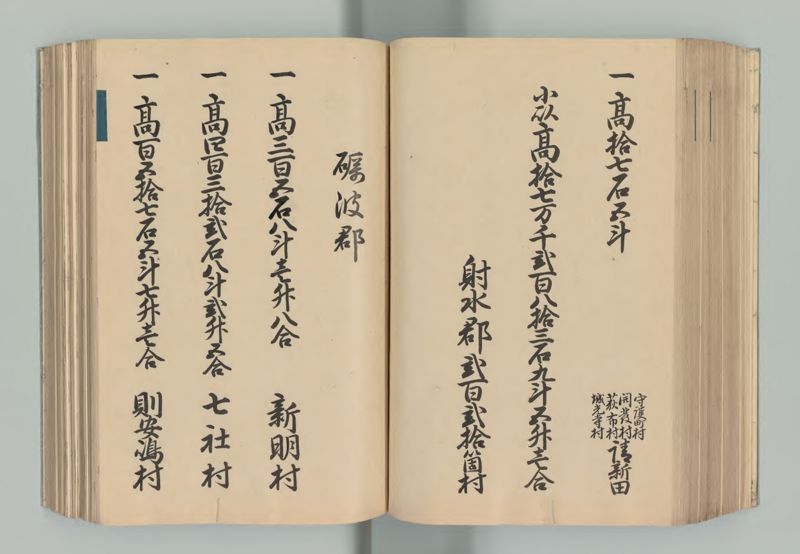 一高拾七石五斗
守護町村
開發村
荻布村
城光寺村
請新田
小以高拾七万千弐百八拾三石九斗五升壱合
射水郡弐百弐拾箇村
礪波郡
一高三百五石八斗壱升八合 新明村
一高四百三拾弐石八斗弐升五合 七社村
一高百五拾七石五斗七升壱合 則安嶋村